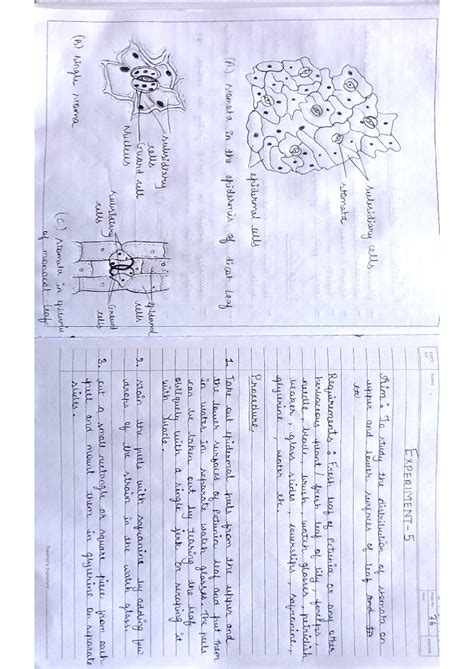 subsidiary cells
stomata
epidermal cells
(A) stomata in the epidermis of dicot leaf
subsidiary
cells
Guard cell
Nucleus
(B) single stoma
epidermal
cells
Guard
cells
subsidiary
cells
(C) stomata in epidermis
of monocot leaf
36
EXPERIMENT-5
Aim: To study the distribution of stomata on
upper and lower surfaces of leaf and to
Requirements : Fresh leaf of Petunia or any other
herbaceous plant, fresh leaf of lily, forceps
needle, blade, brush, watch glasses, petridish
beaker, glass slides, coverslips, safranine,
glycerine, water etc.
Procedure
1. Take out epidermal peels from the upper and
the lower surfaces of Petunia leaf and put them
in water in separate watch glasses. The peels
can be taken out by tearing the leaf
obliquely with a single jerk or scraping it
with blade.
2. Stain the peels with safranine by adding few
drops of the strain in the watch glass.
3. cut a small rectangle or square piece from each
peel and mount them in glycerine on separate
slides.
Teacher's Signature